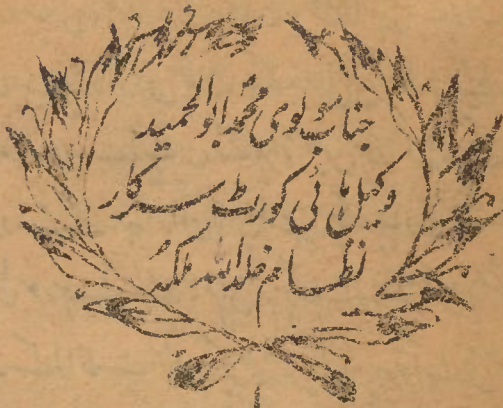 جناب مولوی محمد ابوالحمید
وکیل ہائی کورٹ سرکار
نظام خلد اللہ ملکہٗ